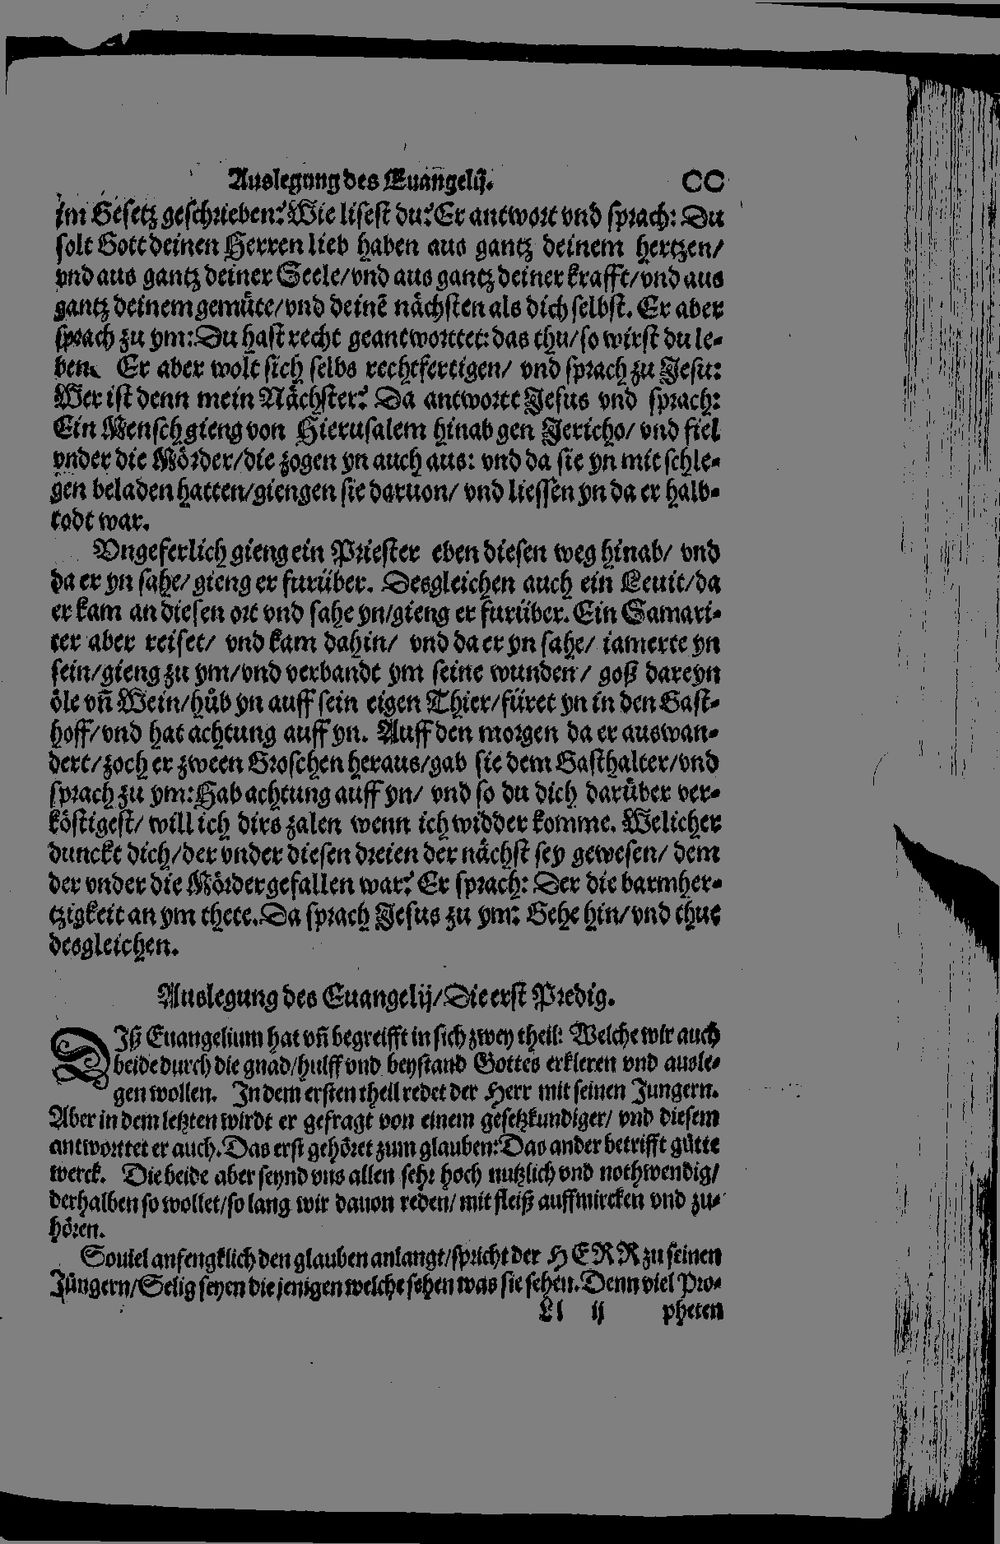 Auslegung des Euangelij. CC
im Gesetz geschrieben? Wie lisest du? Er antwort vnd sprach: Du
solt Gott deinen Herren lieb haben aus gantz deinem hertzen/
vnd aus gantz deiner Seele/vnd aus gantz deiner krafft/vnd aus
gantz deinem gemüte/vnd deinē nächsten als dich selbst. Er aber
sprach zu ym: Du hast recht geantworttet: das thu/so wirst du le-
ben. Er aber wolt sich selbs rechtfertigen/ vnd sprach zu Jesu:
Wer ist denn mein Nächster? Da antwortt Jesus vnd sprach:
Ein Mensch gieng von Hierusalem hinab gen Jericho/ vnd fiel
vnder die Mörder/die zogen yn auch aus: vnd da sie yn mit schle-
gen beladen hatten/giengen sie daruon/ vnd liessen yn da er halb-
todt war.
Vngeferlich gieng ein Priester eben diesen weg hinab/ vnd
da er yn sahe/ gieng er furüber. Desgleichen auch ein Leuit/da
er kam an diesen ort vnd sahe yn/gieng er furüber. Ein Samari-
ter aber reiset/ vnd kam dahin/ vnd da er yn sahe/ iamerte yn
sein/gieng zu ym/vnd verbandt ym seine wunden/ goß dareyn
öle vñ Wein/hůb yn auff sein eigen Thier/füret yn in den Gast-
hoff/vnd hat achtung auff yn. Auff den morgen da er auswan-
dert/zoch er zween Groschen heraus/gab sie dem Gasthalter/vnd
sprach zu ym: Hab achtung auff yn/ vnd so du dich darüber ver-
köstigest/ will ich dirs zalen wenn ich widder komme. Welicher
dunckt dich/der vnder diesen dreien der nächst sey gewesen/ dem
der vnder die Mörder gefallen war? Er sprach: Der die barmher-
tzigkeit an ym thete. Da sprach Jesus zu ym: Gehe hin/vnd thue
desgleichen.
Auslegung des Euangelij/Die erst Predig.
Diß Euangelium hat vñ begreifft in sich zwey theil: Welche wir auch
beide durch die gnad/hulff vnd beystand Gottes erkleren vnd ausle-
gen wollen. In dem ersten theil redet der Herr mit seinen Jungern.
Aber in dem letzten wirdt er gefragt von einem gesetzkundiger/ vnd diesem
antworttet er auch. Das erst gehöret zum glauben: Das ander betrifft gůtte
werck. Die beide aber seynd vns allen sehr hoch nutzlich vnd nothwendig/
derhalben so wollet/so lang wir dauon reden/ mit fleiß auffmircken vnd zu-
hören.
Souiel anfengklich den glauben anlangt/spricht der HERR zu seinen
Jüngern/Selig seyen die jenigen welche sehen was sie sehen. Denn viel Pro-
Ll ij pheten